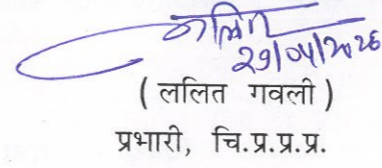 ललित
29/04/2026
( ललित गवली )
प्रभारी, चि.प्र.प्र.प्र.